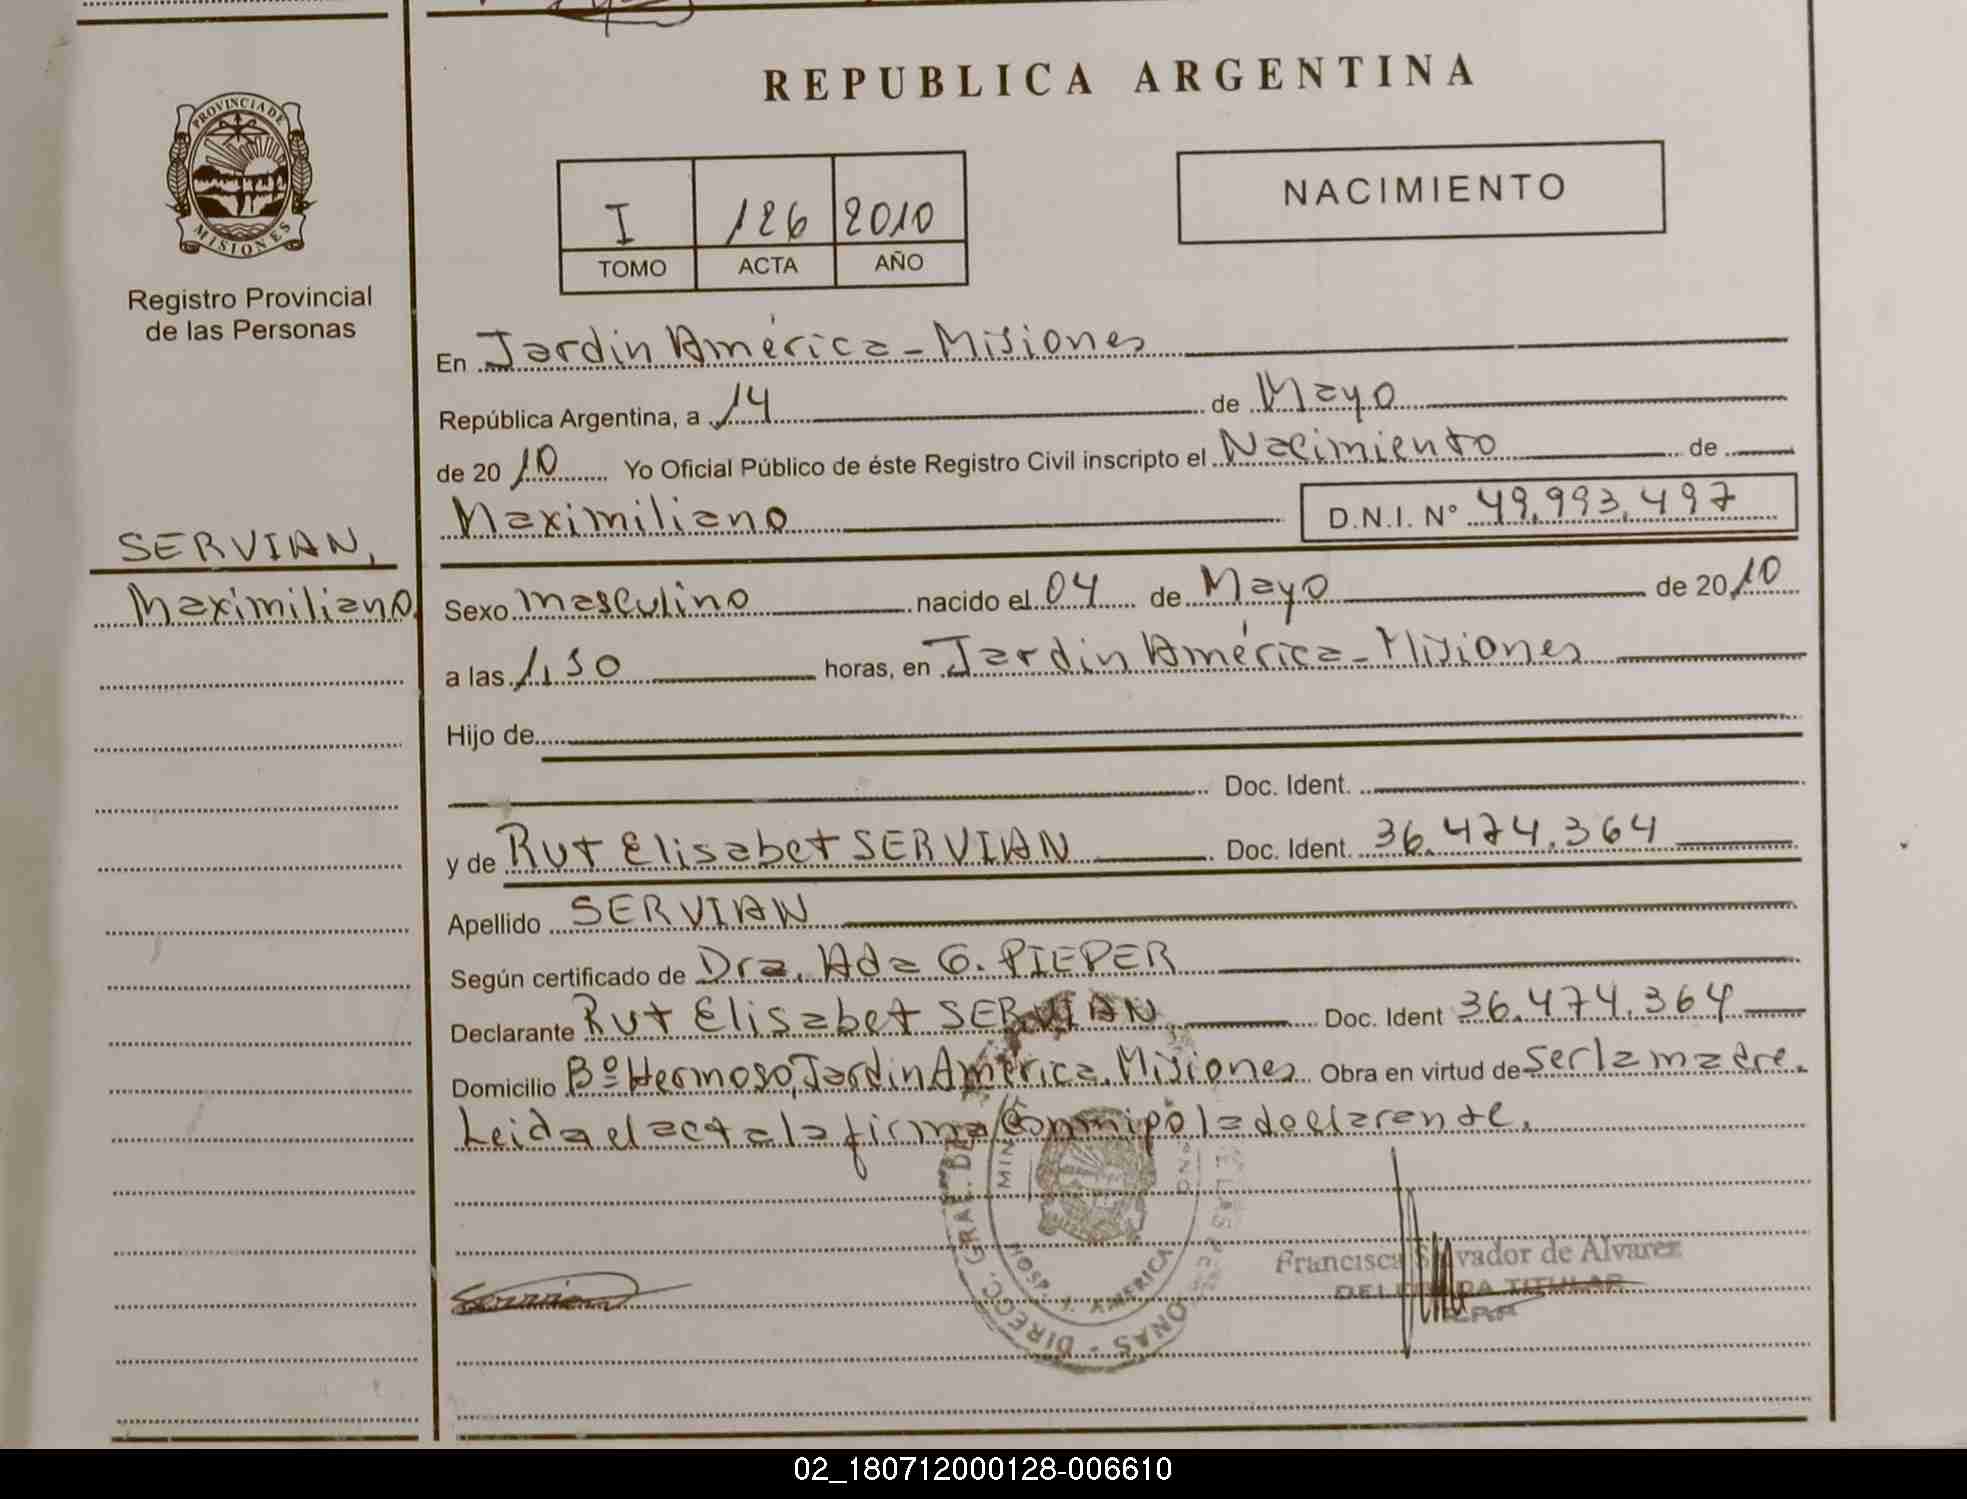 REPUBLICA ARGENTINA
PROVINCIA DE
MISIONES
Registro Provincial
de las Personas
I 126 2010
TOMO ACTA AÑO
NACIMIENTO
SERVIAN,
Maximiliano
En Jardin América - Misiones
República Argentina, a 14 de Mayo
de 2010 Yo Oficial Público de éste Registro Civil inscripto el Nacimiento de
Maximiliano D.N.I. Nº 49.993.497
Sexo masculino nacido el 04 de Mayo de 2010
a las 1,30 horas, en Jardin América - Misiones
Hijo de
Doc. Ident.
y de Rut Elisabet SERVIAN Doc. Ident. 36.474.364
Apellido SERVIAN
Según certificado de Dra. Ada G. PIEPER
Declarante Rut Elisabet SERVIAN Doc. Ident 36.474.364
Domicilio Bº Hermoso, Jardin América. Misiones Obra en virtud de ser la madre.
Leida el acta la firma conmigo la declarante.
DIRECC. GRAL. DE
HOSP. J. AMERICA
Servian
Francisca Salvador de Alvarez
DELEGADA TITULAR
02_180712000128-006610